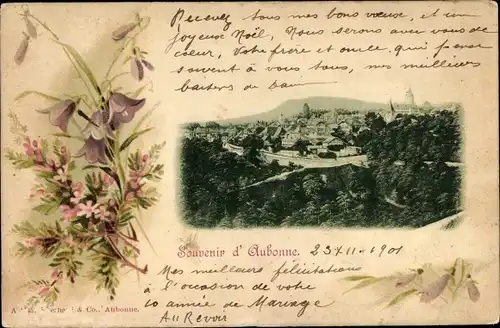 Recevez tous mes bons vœux, et un
joyeux Noël, Nous serons avec vous de
cœur, Votre frère et oncle qui pense
souvent à vous tous, mes meilleurs
baisers de
Souvenir d'Aubonne. 23 XII - 1901
Mes meilleurs félicitations
à l'occasion de votre
10 année de Mariage
Au Revoir
& Co., Aubonne.